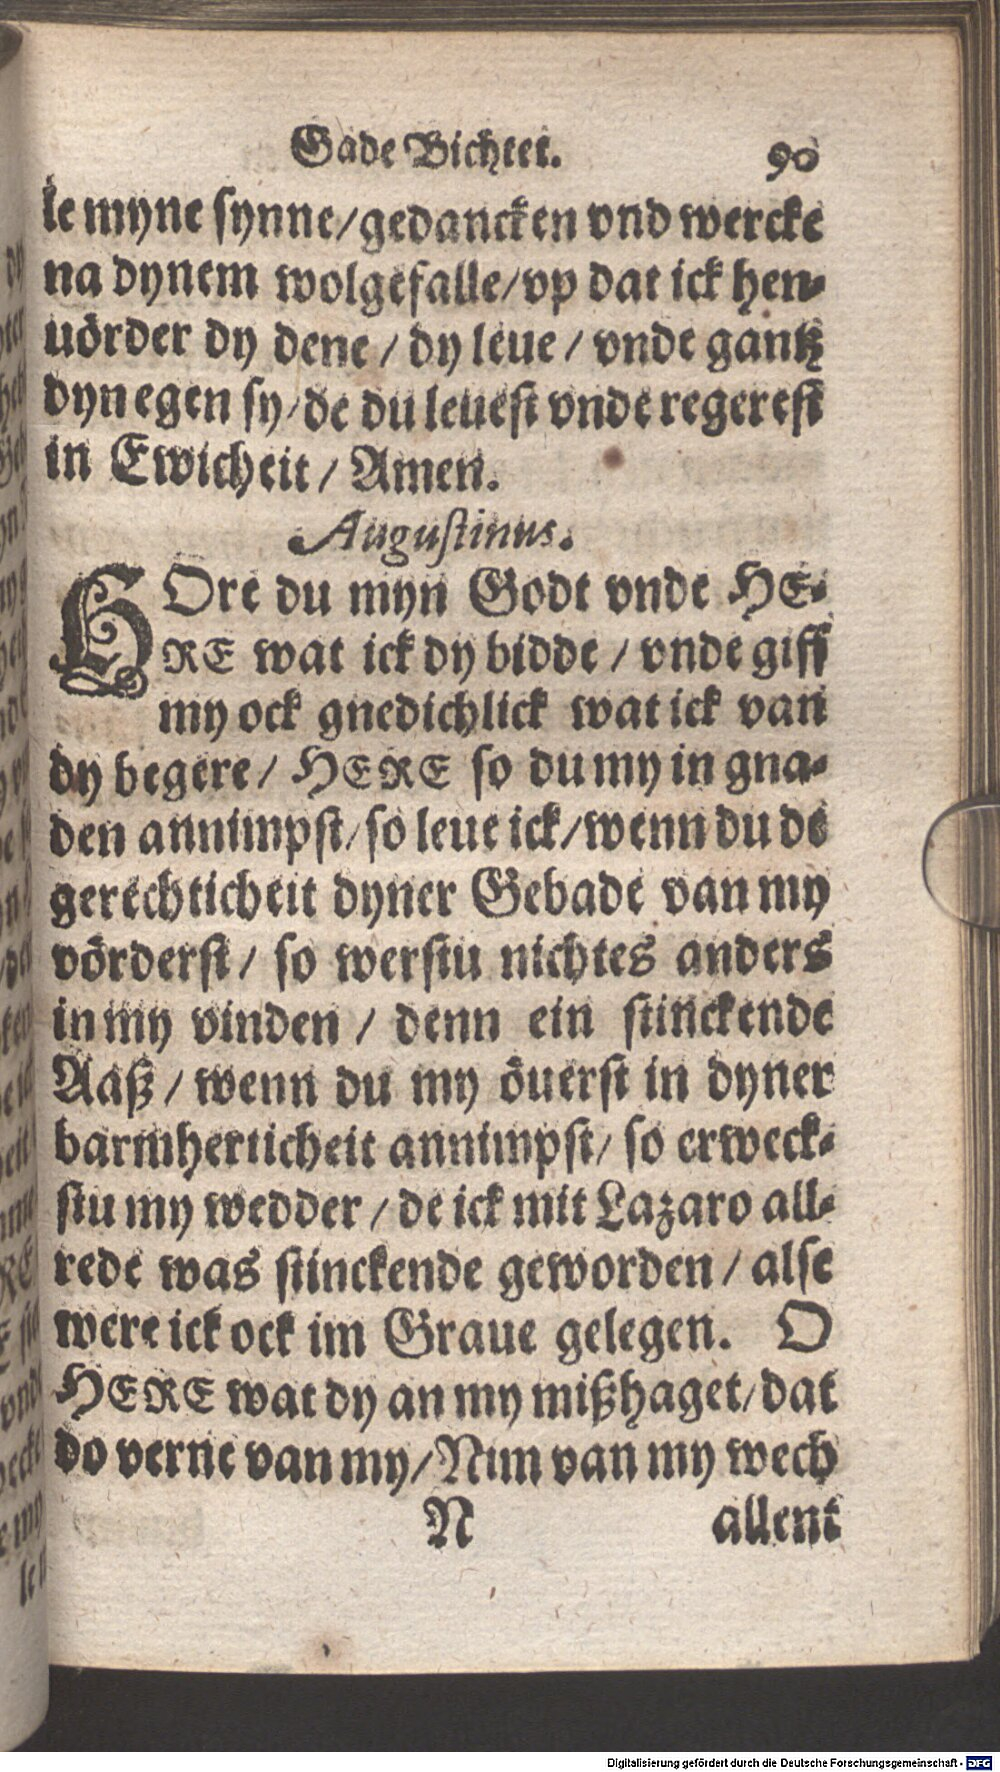 Gade Bichtet. 90
le myne synne/gedancken vnd wercke
na dynem wolgefalle/vp dat ick hen-
uörder dy dene / dy leue / vnde gantz
dyn egen sy/de du leuest vnde regerest
in Ewicheit / Amen.
Augustinus.
HOre du myn Godt vnde HE-
RE wat ick dy bidde / vnde giff
my ock gnedichlick wat ick van
dy begere / HERE so du my in gna-
den annimpst/so leue ick/wenn du de
gerechticheit dyner Gebade van my
vörderst / so werstu nichtes anders
in my vinden / denn ein stinckende
Aaß / wenn du my öuerst in dyner
barmherticheit annimpst/ so erweck-
stu my wedder / de ick mit Lazaro all-
rede was stinckende geworden / alse
were ick ock im Graue gelegen. O
HERE wat dy an my mißhaget/dat
do verne van my/Nim van my wech
N allent
Digitalisierung gefördert durch die Deutsche Forschungsgemeinschaft - DFG